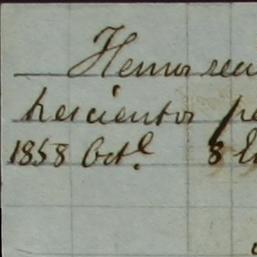 Hemos reci
trescientos pe
1858 Oct.e 8 En